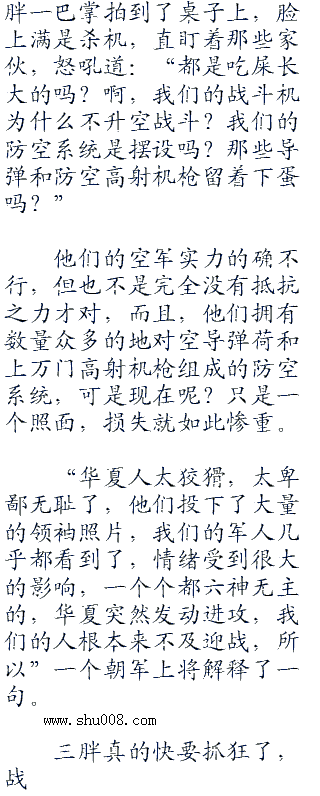 胖一巴掌拍到了桌子上，脸
上满是杀机，直盯着那些家
伙，怒吼道：“都是吃屎长
大的吗？啊，我们的战斗机
为什么不升空战斗？我们的
防空系统是摆设吗？那些导
弹和防空高射机枪留着下蛋
吗？”
他们的空军实力的确不
行，但也不是完全没有抵抗
之力才对，而且，他们拥有
数量众多的地对空导弹荷和
上万门高射机枪组成的防空
系统，可是现在呢？只是一
个照面，损失就如此惨重。
“华夏人太狡猾，太卑
鄙无耻了，他们投下了大量
的领袖照片，我们的军人几
乎都看到了，情绪受到很大
的影响，一个个都六神无主
的，华夏突然发动进攻，我
们的人根本来不及迎战，所
以”一个朝军上将解释了一
句。
www.shu008.com
三胖真的快要抓狂了，
战